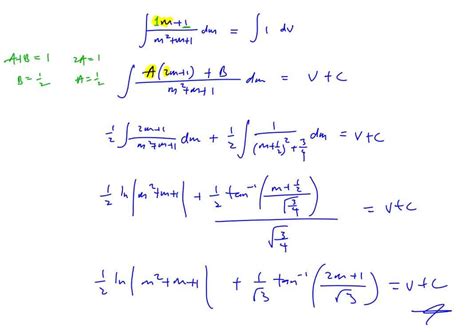 ∫ (1m+1)/(m²+m+1) dm = ∫ 1 dv
A+B = 1   2A = 1
B = 1/2   A = 1/2
∫ (A(2m+1) + B)/(m²+m+1) dm = v + c
1/2 ∫ (2m+1)/(m²+m+1) dm + 1/2 ∫ 1/((m+1/2)² + 3/4) dm = v + c
1/2 ln|m²+m+1| + (1/2 tan⁻¹((m+1/2)/√(3/4)))/√(3/4) = v + c
1/2 ln|m²+m+1| + 1/√3 tan⁻¹((2m+1)/√3) = v + c